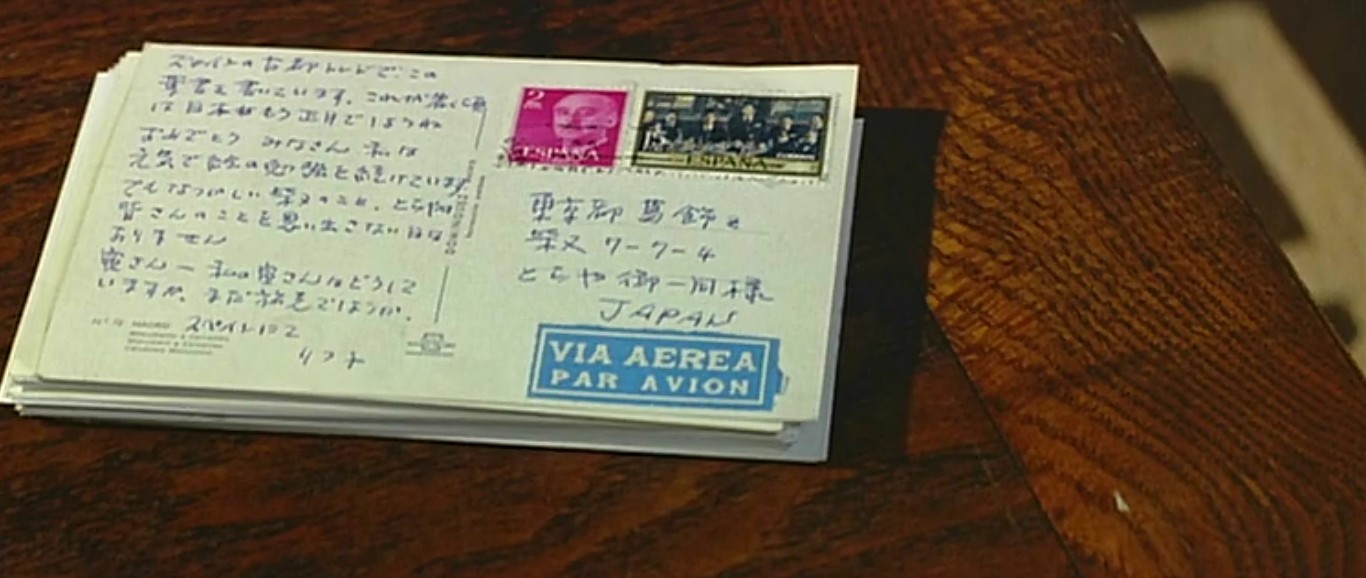 スペインの古都トレドで、この
葉書を書いています。これが着く頃
は日本はもう正月でしょうね
おめでとう みなさん 私は
元気で絵の勉強を続けています
でもなつかしい柴又のこと、とらやの
皆さんのことを思い出さない日は
ありません
寅さん — 私の寅さんはどうして
いますか、まだ旅先でしょうか。
スペインにて
リつ子
Nº 19 MADRID
Monumento a Cervantes
2
ESPAÑA
ESPAÑA
東京都葛飾区
柴又 7-7-4
とらや御一同様
JAPAN
VIA AEREA
PAR AVION